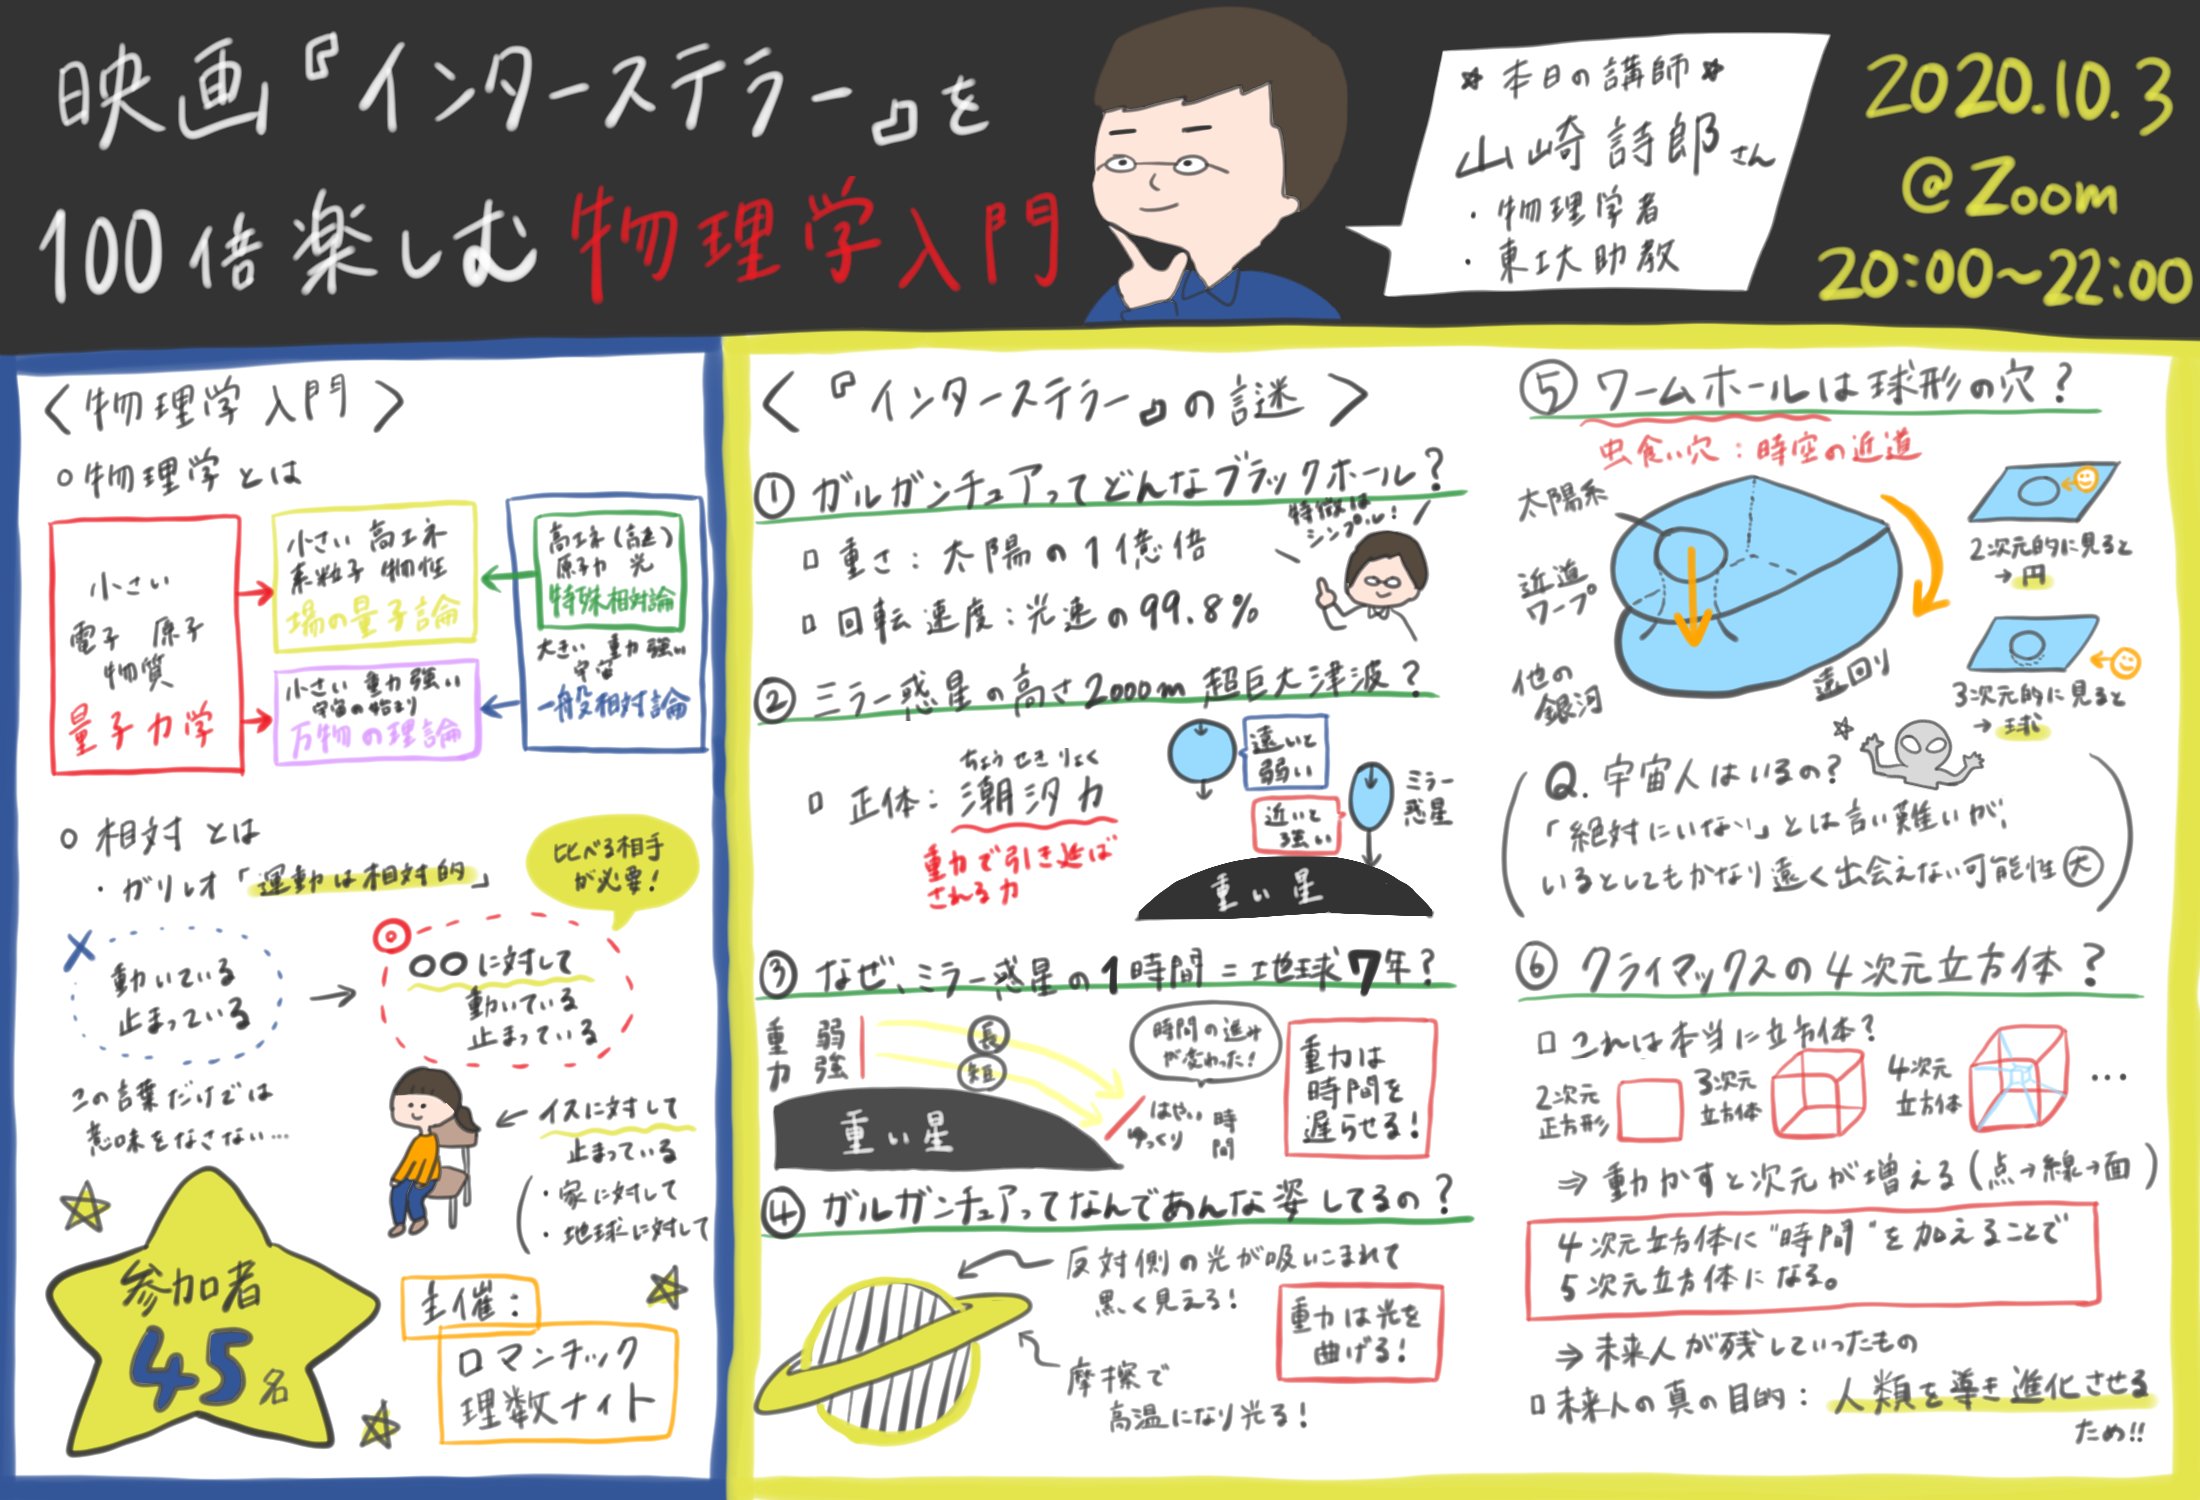 映画『インターステラー』を
100倍楽しむ物理学入門
☆本日の講師☆
山崎詩郎さん
・物理学者
・東工大助教
2020.10.3
@Zoom
20:00〜22:00
〈物理学入門〉
○物理学とは
小さい
電子 原子
物質
量子力学
小さい 高エネ
素粒子 物性
場の量子論
小さい 重力強い
宇宙の始まり
万物の理論
高エネ(速)
原子力 光
特殊相対論
大きい 重力強い
宇宙
一般相対論
○相対とは
・ガリレオ「運動は相対的」
比べる相手
が必要!
×
動いている
止まっている
→
◎
○○に対して
動いている
止まっている
この言葉だけでは
意味をなさない…
← イスに対して
止まっている
・家に対して
・地球に対して
参加者
45名
主催:
ロマンチック
理数ナイト
〈『インターステラー』の謎〉
① ガルガンチュアってどんなブラックホール?
□重さ:太陽の1億倍
□回転速度:光速の99.8%
特徴は
シンプル!
② ミラー惑星の高さ2000m超巨大津波?
ちょうせきりょく
□正体:潮汐力
重力で引き延ば
される力
遠いと
弱い
近いと
強い
ミラー
惑星
重い星
③ なぜ、ミラー惑星の1時間=地球7年?
重力
弱
強
長
短
重い星
時間の進み
が変わった!
はやい
ゆっくり
時間
重力は
時間を
遅らせる!
④ ガルガンチュアってなんであんな姿してるの?
反対側の光が吸いこまれて
黒く見える!
摩擦で
高温になり光る!
重力は光を
曲げる!
⑤ ワームホールは球形の穴?
虫食い穴:時空の近道
太陽系
近道
ワープ
他の
銀河
遠回り
2次元的に見ると
→円
3次元的に見ると
→球
Q.宇宙人はいるの?
「絶対にいない」とは言い難いが、
いるとしてもかなり遠く出会えない可能性大
⑥ クライマックスの4次元立方体?
□これは本当に立方体?
2次元
正方形
3次元
立方体
4次元
立方体
…
⇒動かすと次元が増える(点→線→面)
4次元立方体に"時間"を加えることで
5次元立方体になる。
⇒未来人が残していったもの
□未来人の真の目的:人類を導き進化させる
ため!!